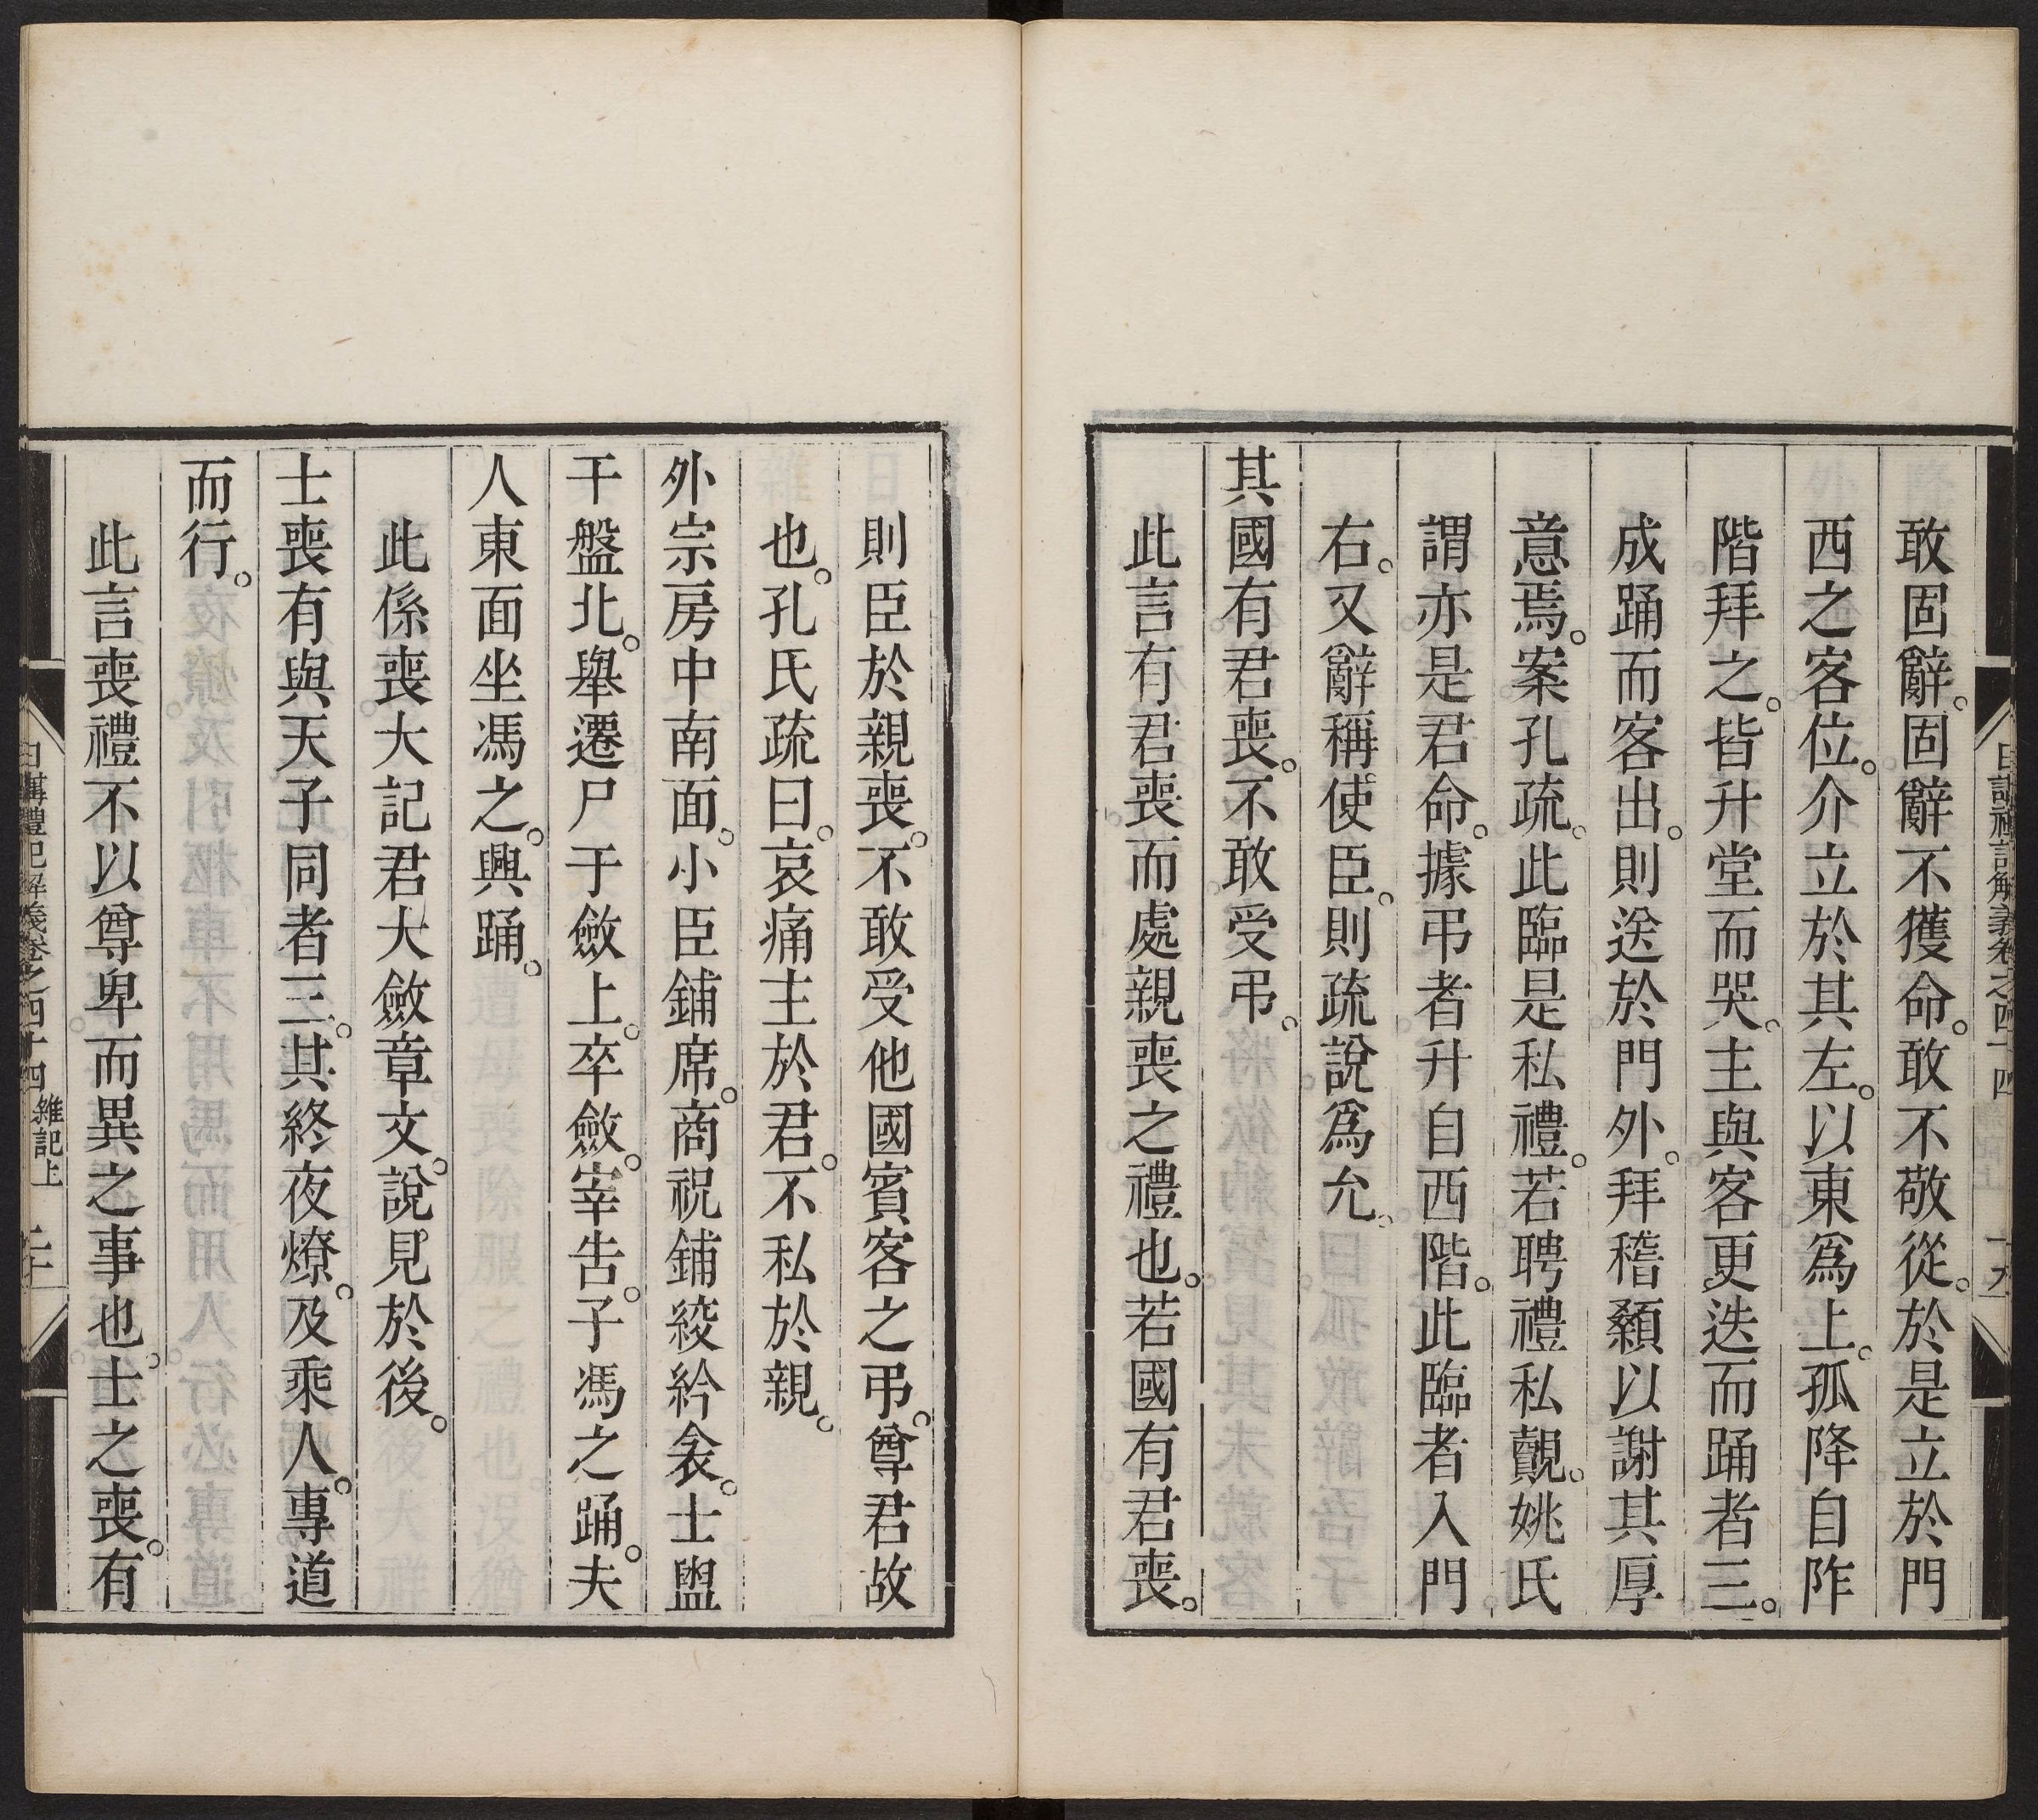 敢固辭。固辭不獲命。敢不敬從。於是立於門
西之客位。介立於其左。以東爲上。孤降自阼
階拜之。皆升堂而哭。主與客更迭而踊者三。
成踊而客出。則送於門外。拜稽顙以謝其厚
意焉。案孔疏。此臨是私禮。若聘禮私覿。姚氏
謂亦是君命。據弔者升自西階。此臨者入門
右。又辭稱使臣。則疏說爲允。
其國有君喪。不敢受弔。
此言有君喪而處親喪之禮也。若國有君喪。
則臣於親喪。不敢受他國賓客之弔。尊君故
也。孔氏疏曰。哀痛主於君。不私於親。
外宗房中南面。小臣鋪席。商祝鋪絞紟衾。士盥
于盤北。舉遷尸于斂上。卒斂。宰告。子馮之踊。夫
人東面坐馮之。興踊。
此係喪大記君大斂章文。說見於後。
士喪有與天子同者三。其終夜燎。及乘人。專道
而行。
此言喪禮不以尊卑而異之事也。士之喪。有
日講禮記解義卷之四十四 雜記上 二十